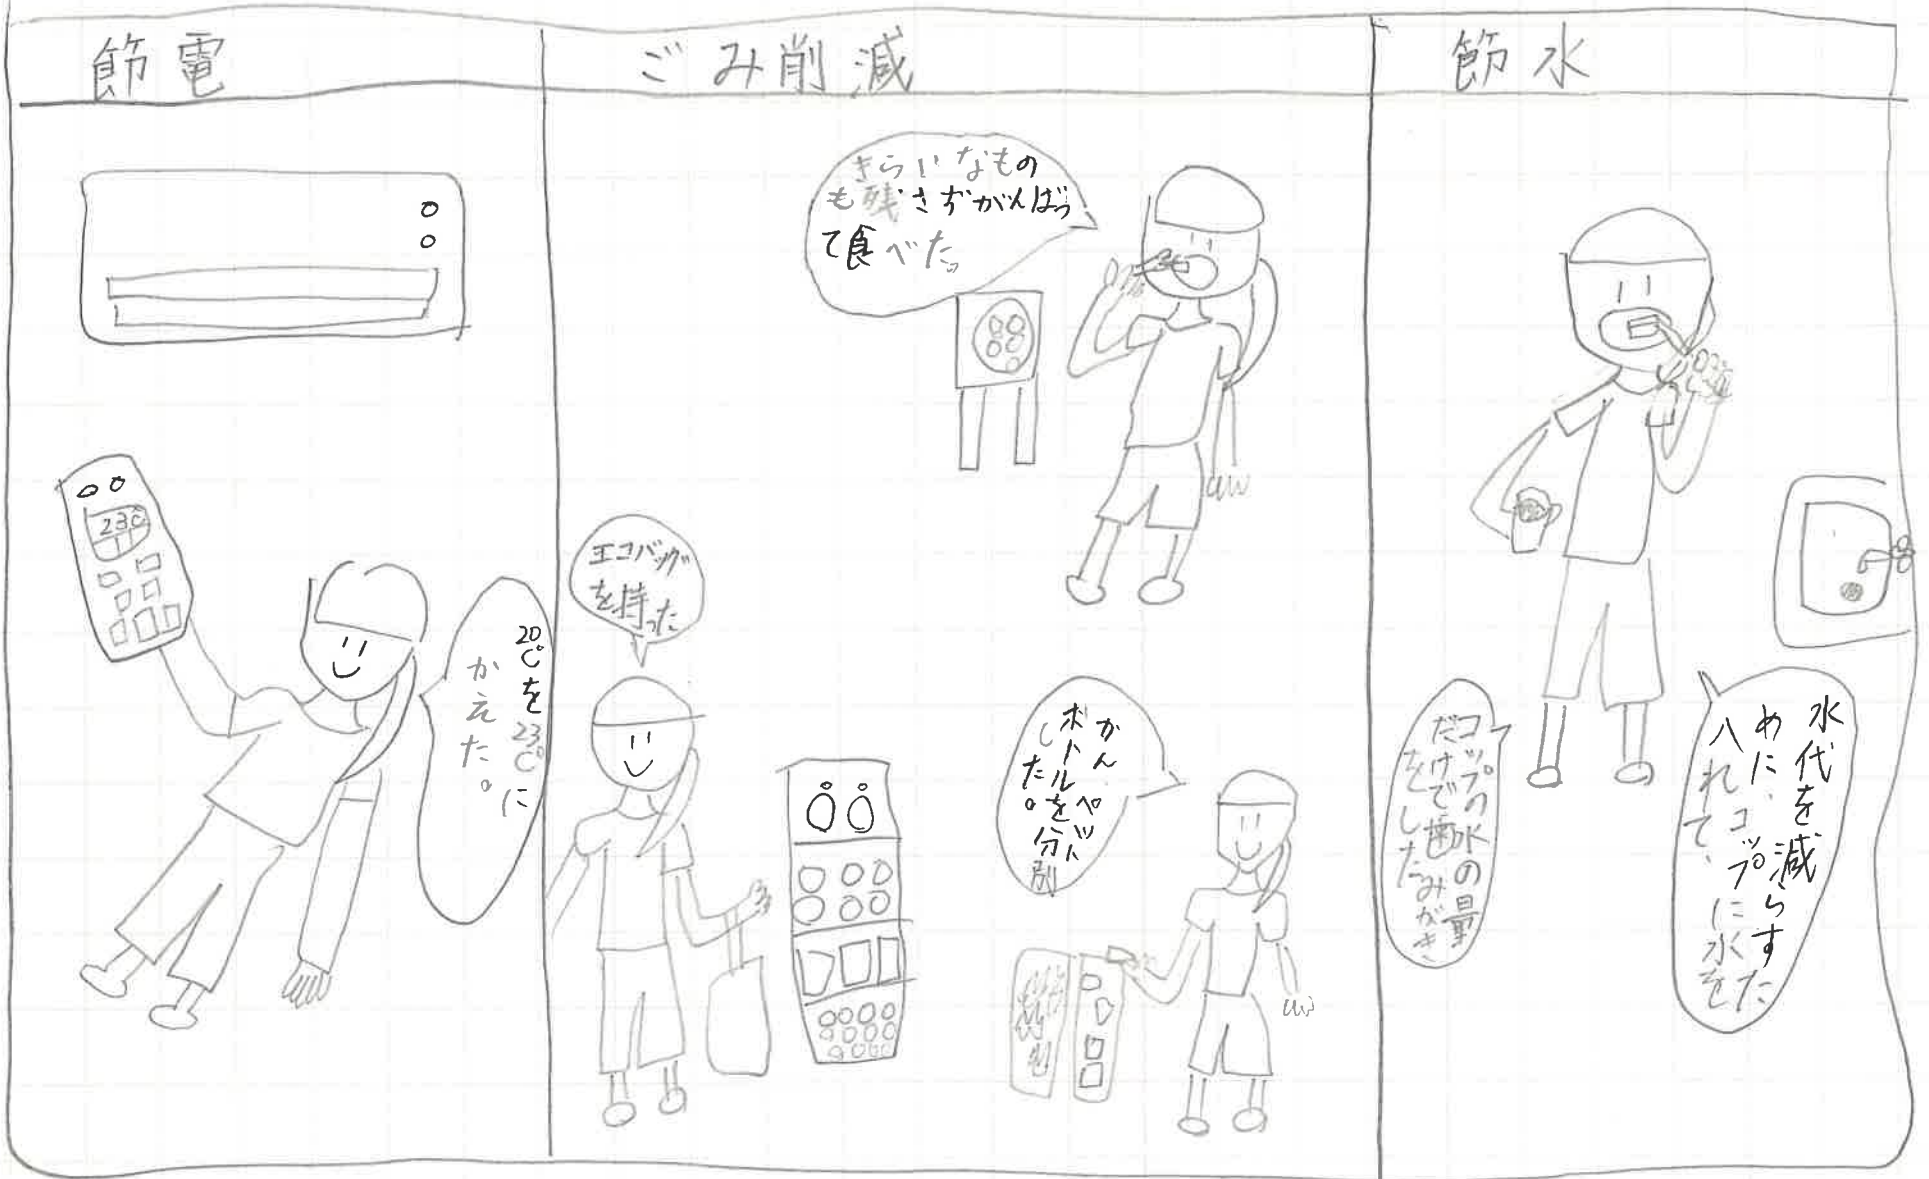 節電
23℃
20℃を23℃に
かえた。
ごみ削減
きらいなもの
も残さずがんばっ
て食べた。
エコバッグ
を持った
かん、ペット
ボトルを分別
した。
節水
水代を減らすた
めに、コップに水を
入れて、
コップの水の量
だけで歯みがき
をした